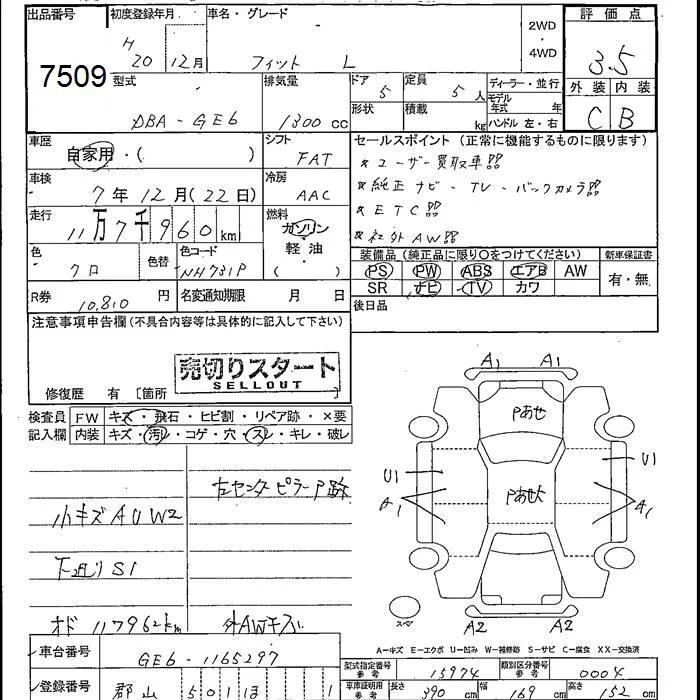 出品番号 初度登録年月 車名・グレード 2WD・4WD 評価点
7509 H20 12月 フィット L 3.5
外装 内装
C B
型式 排気量 ドア 定員 ディーラー・並行
DBA-GE6 1300cc 5 5人 モデル年式 年
形状 積載 kg ハンドル 左・右
車歴 シフト セールスポイント(正常に機能するものに限ります)
自家用・( ) FAT *ユーザー買取車!!
車検 冷房 *純正ナビ-TV-バックカメラ!!
7年12月(22日) AAC *ETC!!
走行 燃料 *社外AW!!
11万7千960km ガソリン・軽油・( )
色 色替 色コード 装備品(純正品に限り○をつけてください) 新車保証書
クロ NH731P PS PW ABS エアB AW 有・無
SR ナビ TV カワ
R券 10,810円 名変通知期限 月 日 後日品
注意事項申告欄(不具合内容等は具体的に記入して下さい)
売切りスタート
SELLOUT
修復歴 有〔箇所
検査員記入欄 FW キズ・飛石・ヒビ割・リペア跡・×要
内装 キズ・汚レ・コゲ・穴・スレ・キレ・破レ
左センターピラーP跡
小キズAUW2
下廻りS1
オド 117962km 外AWキズ
A1 A1
Pあせ
U1 U1
A1 Pあせ大 A1
スペア A2 A2
A-キズ E-エクボ U-凹み W-補修跡 S-サビ C-腐食 XX-交換済
車台番号 GE6-1165297 型式指定番号参考 15974 類別区分番号参考 0004
登録番号 郡山 501 ほ 1 車庫証明用参考 長さ 390cm 幅 169cm 高さ 152cm